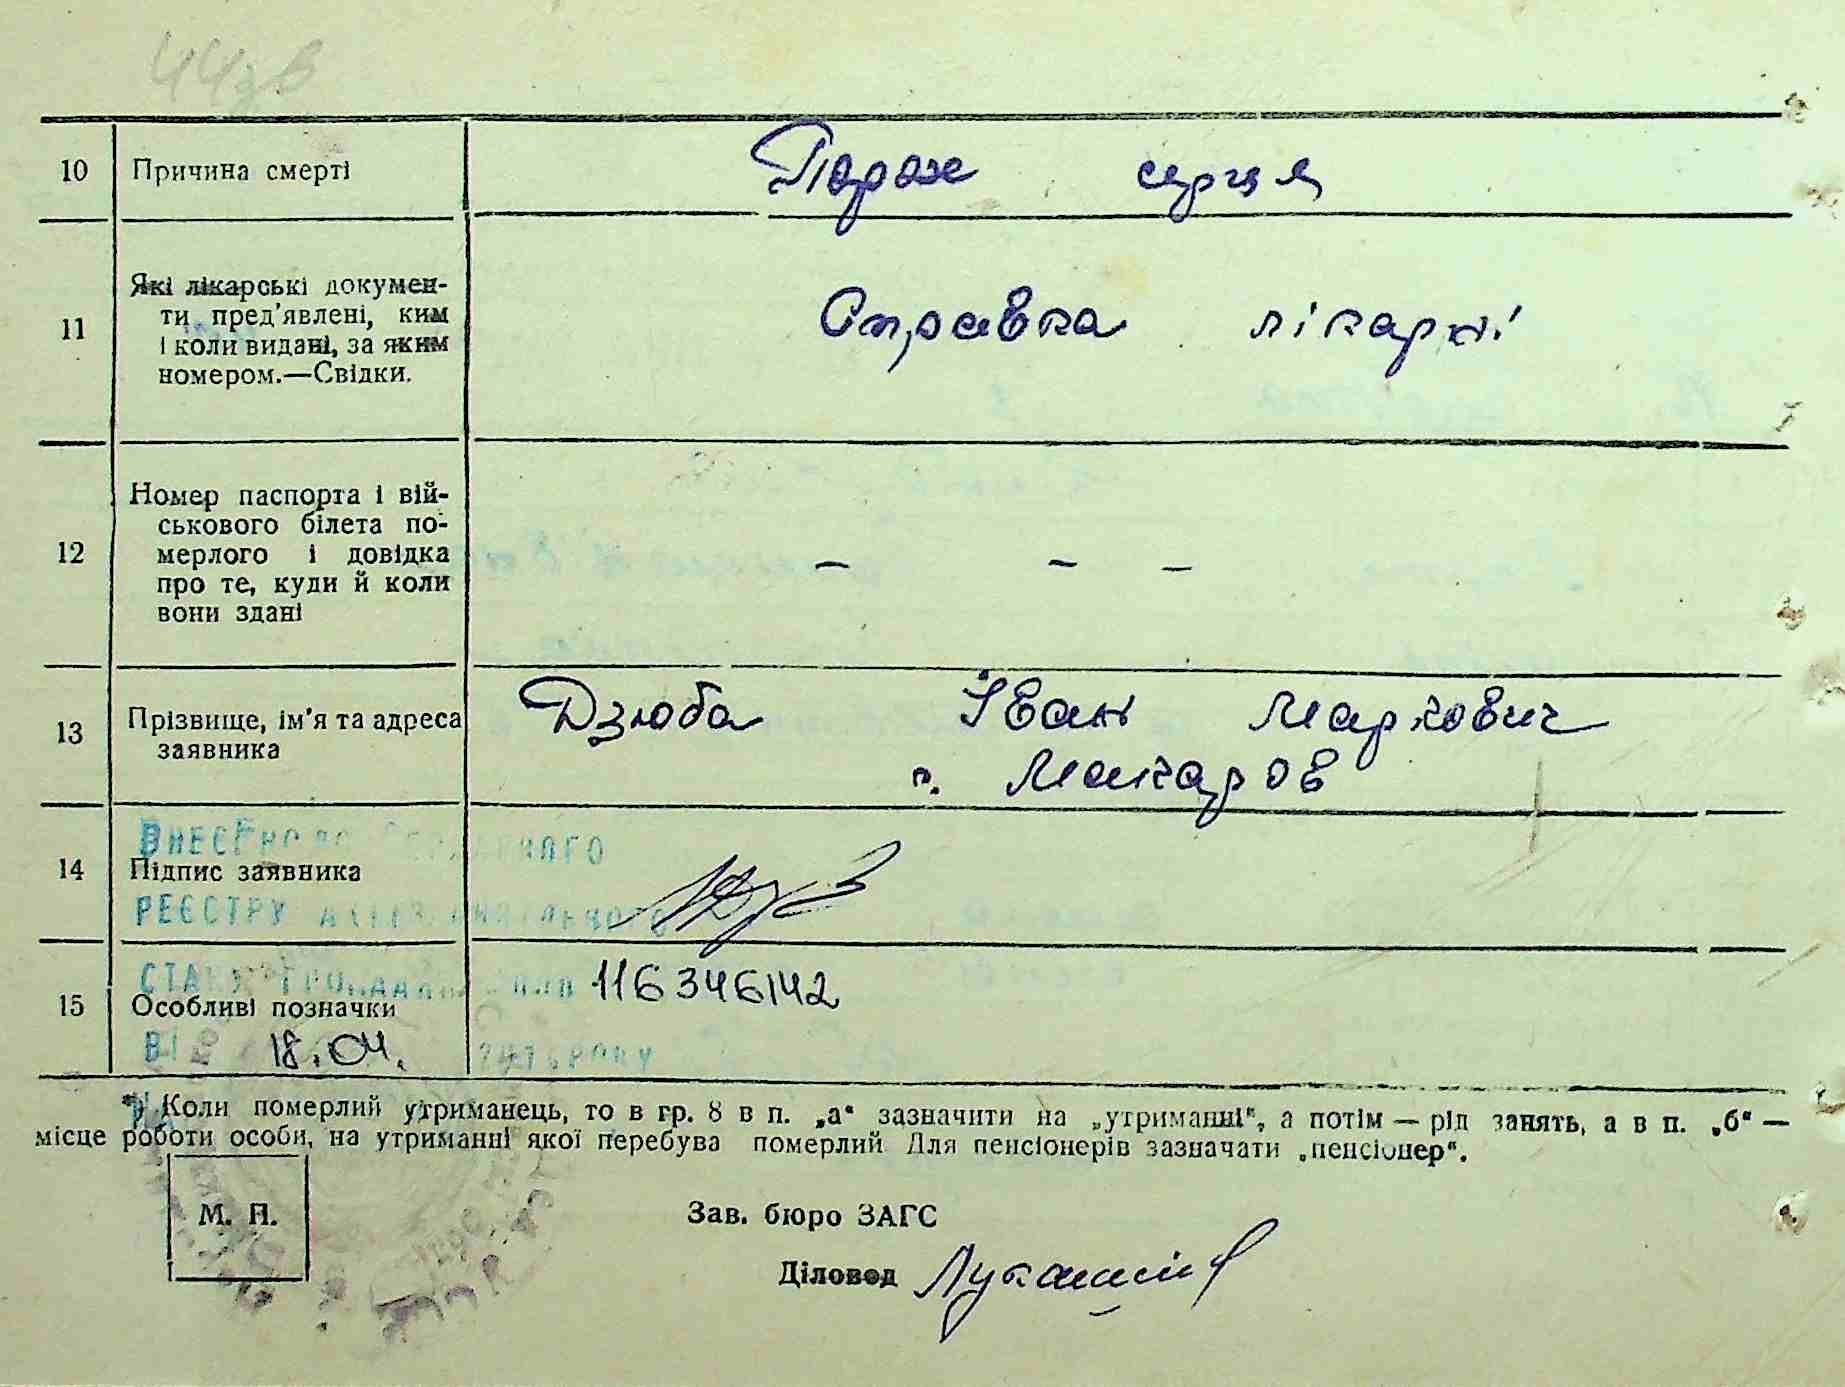 10 Причина смерті Порок серця
11 Які лікарські докумен-
ти пред'явлені, ким
і коли видані, за яким
номером.—Свідки.
Справка лікарні
12 Номер паспорта і вій-
ськового білета по-
мерлого і довідка
про те, куди й коли
вони здані
— — —
13 Прізвище, ім'я та адреса
заявника
Дзюба Іван Маркович
с. Макаров
ВНЕСЕНО ДО ДЕРЖАВНОГО
14 Підпис заявника
РЕЄСТРУ АКТІВ ЦИВІЛЬНОГО
СТАНУ ГРОМАДЯН ЗА № 116346142
15 Особливі позначки
ВІД 18.04. РОКУ
*) Коли померлий утриманець, то в гр. 8 в п. „а“ зазначити на „утриманні“, а потім — рід занять, а в п. „б“ —
місце роботи особи, на утриманні якої перебува померлий Для пенсіонерів зазначати „пенсіонер“.
М. П.
Зав. бюро ЗАГС
Діловод